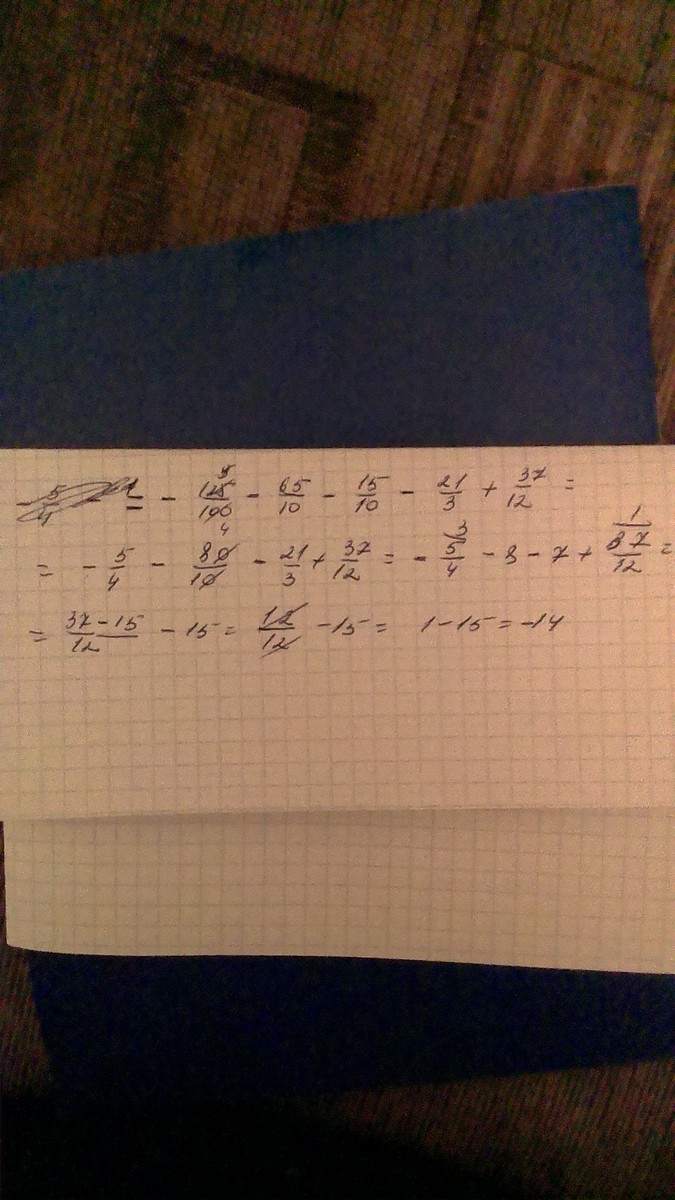 = - 125/100 - 65/10 - 15/10 - 21/3 + 37/12 =
= - 5/4 - 80/10 - 21/3 + 37/12 = - 5/4 - 8 - 7 + 37/12 =
= 37-15/12 - 15 = 12/12 - 15 = 1-15 = -14